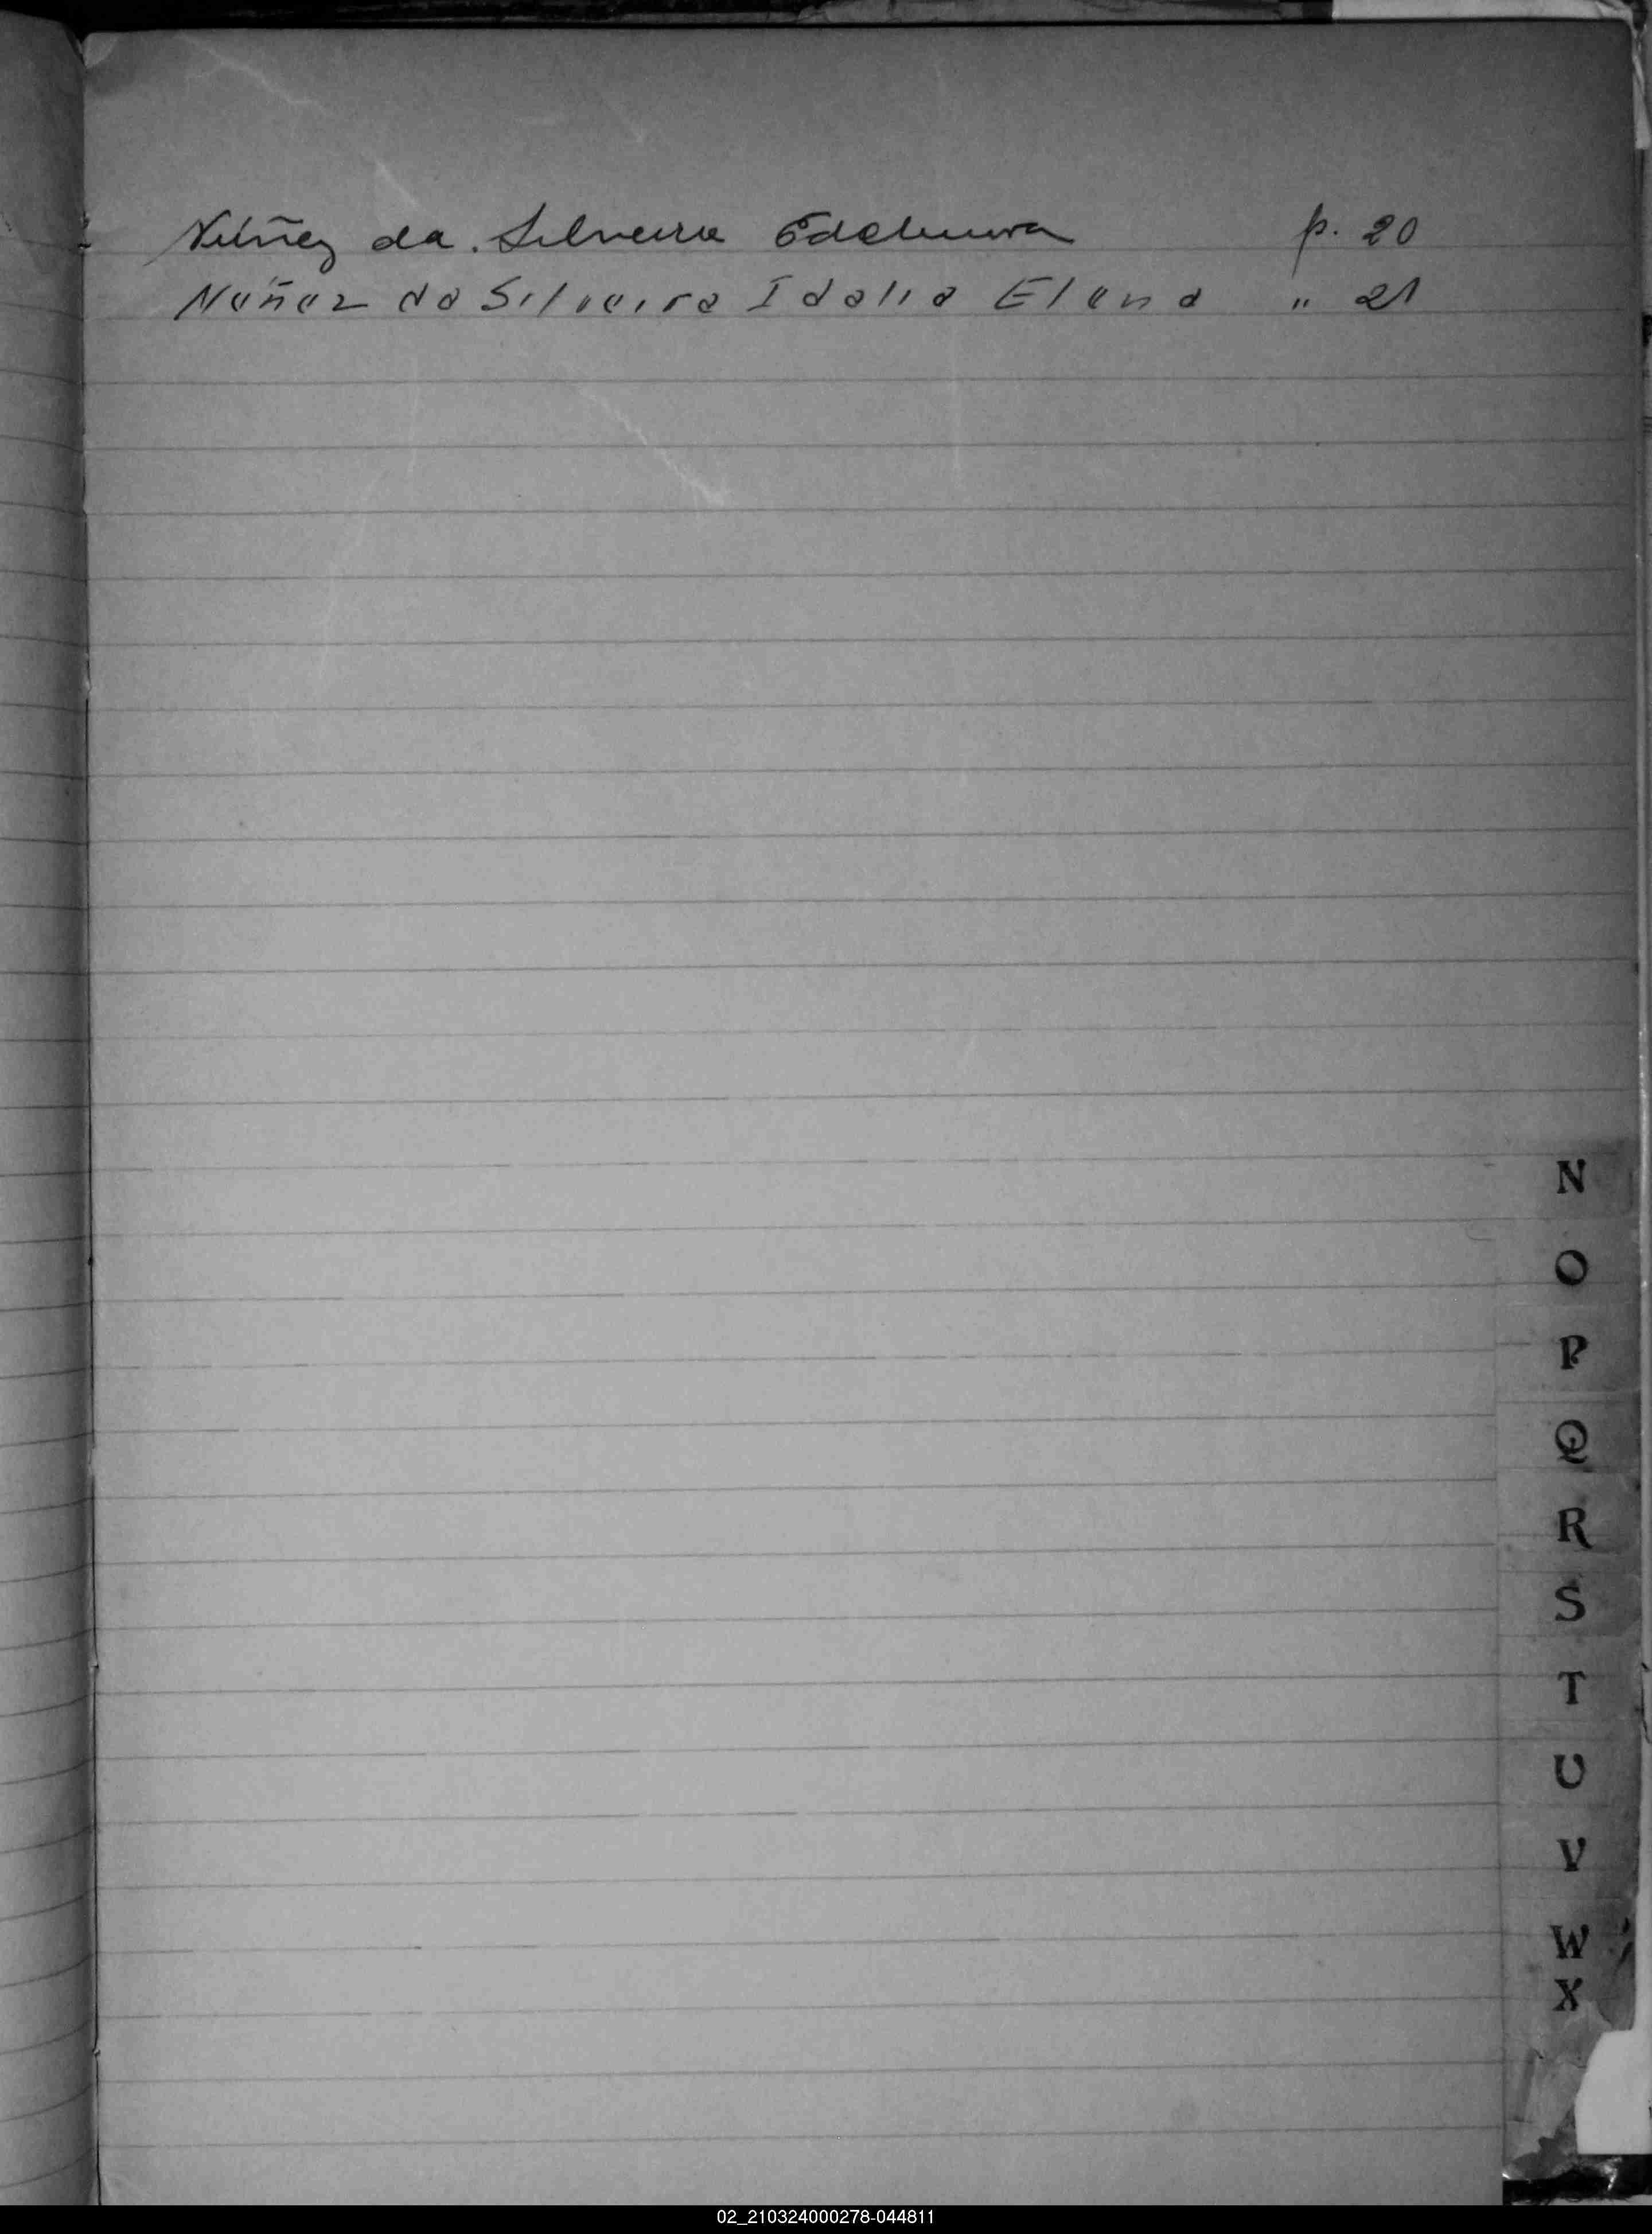 Núñez da Silveira Edelmira p. 20
Nuñez da Silveira Idalia Elena " 21
N
O
P
Q
R
S
T
U
V
W
X
02_210324000278-044811